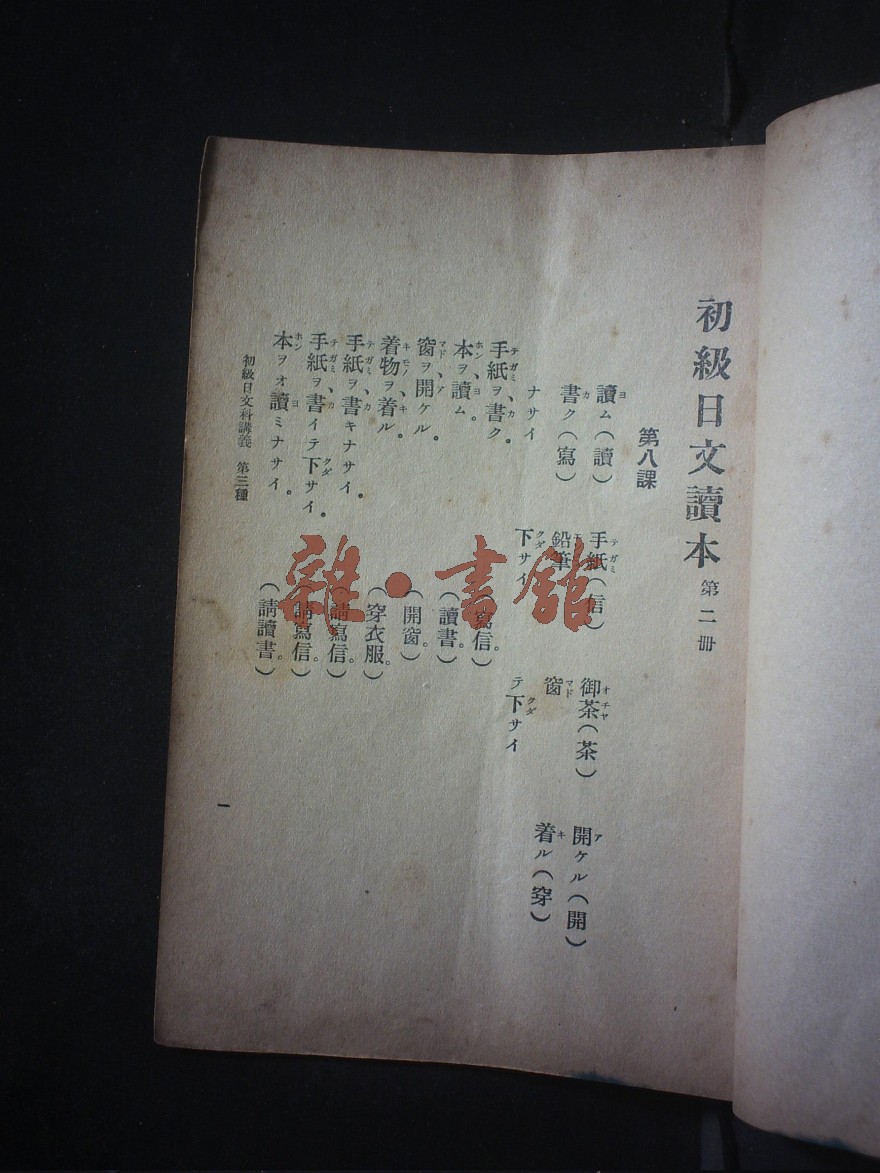 初級日文讀本 第二冊
第八課
讀ム(讀) 手紙(信) 御茶(茶) 開ケル(開)
書ク(寫) 鉛筆 窗 着ル(穿)
ナサイ 下サイ テ下サイ
手紙ヲ書ク。 (寫信。)
本ヲ讀ム。 (讀書。)
窗ヲ開ケル。 (開窗。)
着物ヲ着ル。 (穿衣服。)
手紙ヲ書キナサイ。 (請寫信。)
手紙ヲ書イテ下サイ。 (請寫信。)
本ヲオ讀ミナサイ。 (請讀書。)
初級日文科講義 第三種
一
雜·書館